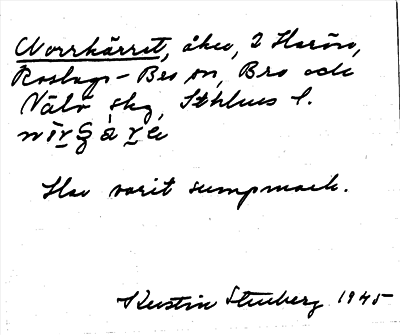 Norrkärret, åker, 2 Harön,
Roslags-Bro sn, Bro och
Väʟö skg, Sthlms l.
Har varit sumpmark.
Kerstin Stenberg 1945